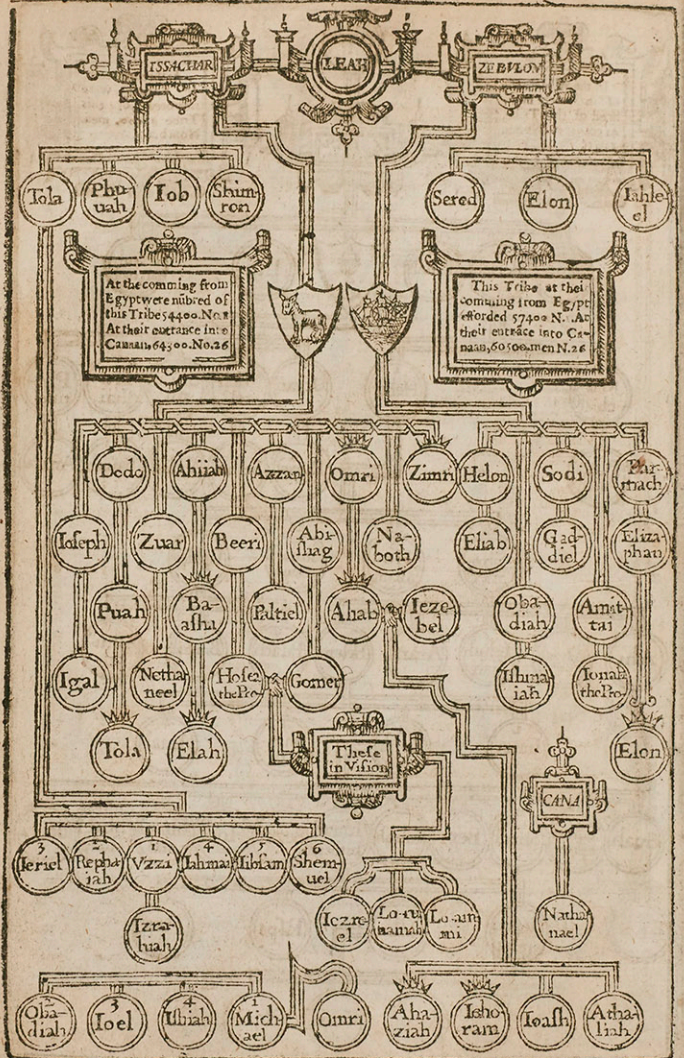 ISSACHAR
LEAH
ZEBVLON
Tola
Phu-
uah
Iob
Shim-
ron
Sered
Elon
Iahle-
el
At the comming from
Egypt were nũbred of
this Tribe 54400. No.
At their entrance into
Canaan, 64300. No. 26
This Tribe at thei
comming from Egypt
efforded 57400 N. . At
their entrãce into Ca-
naan, 60500. men N. 26
Dodo
Ahiiah
Azzan
Omri
Zimri
Helon
Sodi
Par-
nach
Ioseph
Zuar
Beeri
Abi-
shag
Na-
both
Eliab
Gad-
diel
Eliza-
phan
Puah
Ba-
asha
Paltiel
Ahab
Ieze-
bel
Oba-
diah
Amit-
tai
Igal
Netha-
neel
Hosea
the Pro
Gomer
Ishma-
iah
Ionah
the Pro
Tola
Elah
These
in Vision
Elon
CANA
3
Ieriel
2
Repha-
iah
1
Vzzi
4
Iahmai
5
Iibsam
6
Shem-
uel
Izra-
hiah
Iezre-
el
Lo-ru
hamah
Lo-am-
mi
Natha
nael
2
Oba-
diah
3
Ioel
4
Ishiah
1
Mich-
ael
Omri
Aha-
ziah
Ieho-
ram
Ioash
Atha-
liah